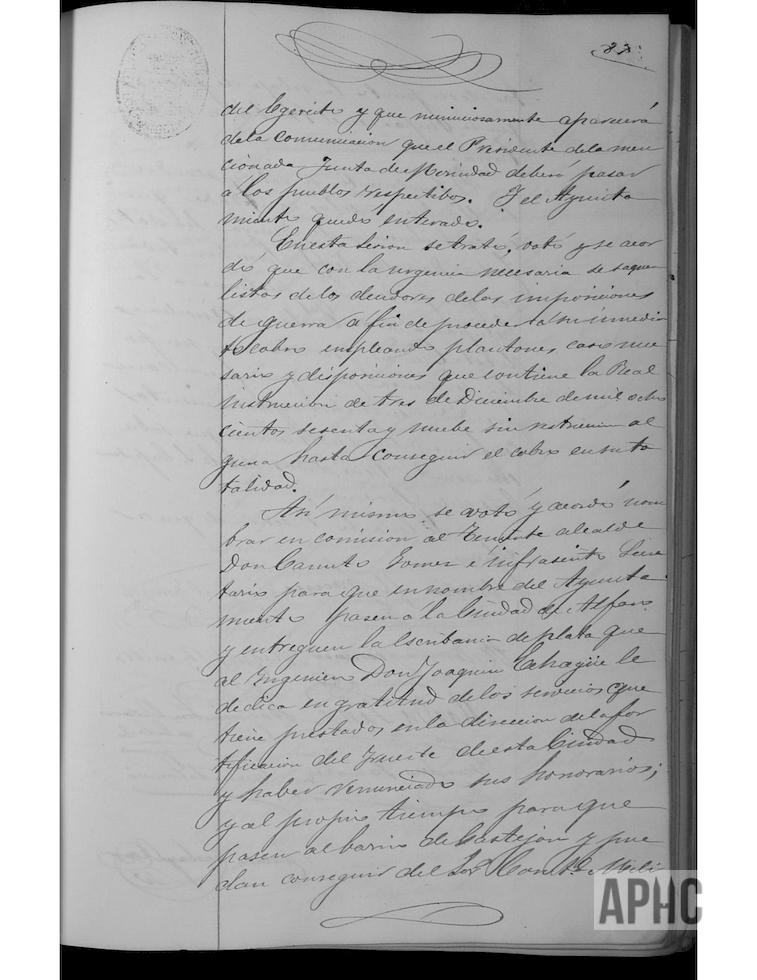 23.
del Egercito y que minuciosamente aparecerá
de la comunicacion que el Presidente de la men
cionada Junta de Merindad deberá pasar
a los pueblos respetibos. Y el Ayunta
miento quedó enterado.
En esta sesion se trató, votó y se acor
dó que con la urgencia necesaria se saquen
listas de los deudores de las imposiciones
de guerra a fin de proceder a su inmedia
to cobro empleando plantones, caso nece
sario y disposiciones que contiene la Real
instruccion de tres de Diciembre de mil ocho
cientos sesenta y nuebe sin restriccion al
guna hasta conseguir el cobro en su to
talidad.
Asi mismo se votó y acordó nom
brar en comision al Teniente alcalde
Don Canuto Gomez é infrascrito Secre
tario para que en nombre del Ayunta
miento pasen a la Ciudad de Alfaro
y entreguen la Escribania de plata que
al Ingeniero Don Joaquin Echagüe le
dedica en gratitud de los servicios que
tiene prestados en la direccion de la for
tificacion del Fuerte de esta Ciudad
y haber renunciado sus honorarios;
y al propio tiempo para que
pasen al barrio de Castejon y pue
dan conseguir del Sor. Comte. Mili
APHC